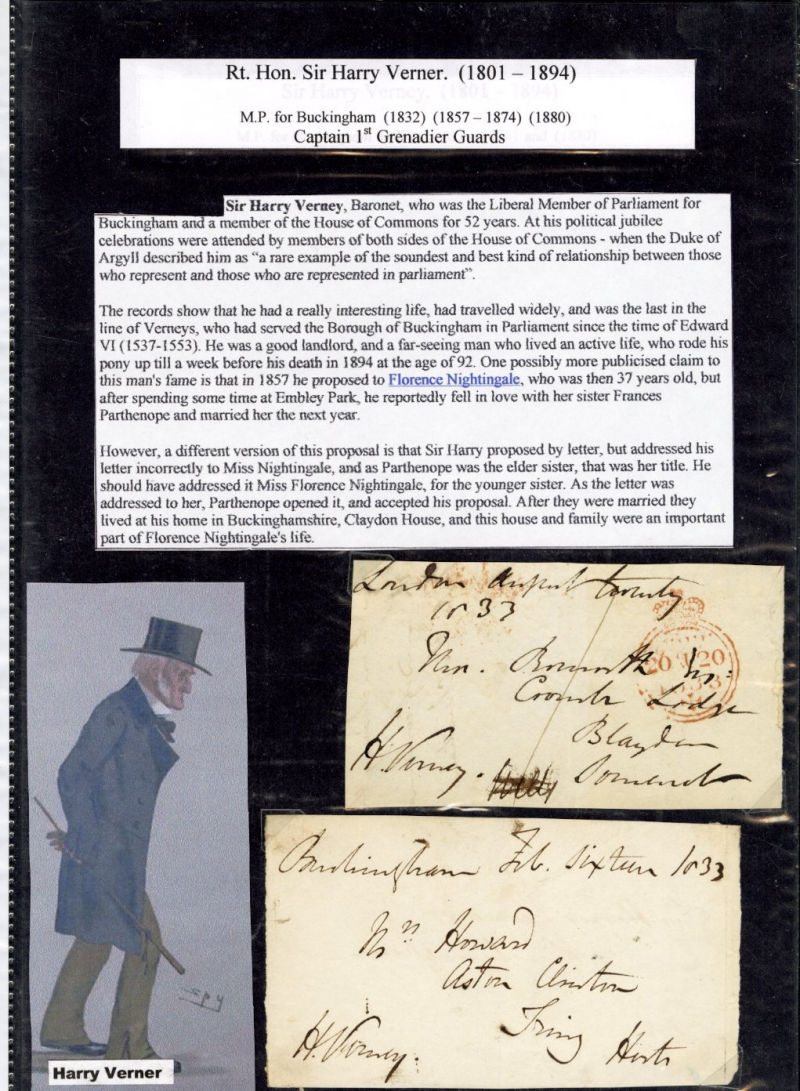 Rt. Hon. Sir Harry Verner. (1801 – 1894)
M.P. for Buckingham (1832) (1857 – 1874) (1880)
Captain 1st Grenadier Guards
Sir Harry Verney, Baronet, who was the Liberal Member of Parliament for
Buckingham and a member of the House of Commons for 52 years. At his political jubilee
celebrations were attended by members of both sides of the House of Commons - when the Duke of
Argyll described him as “a rare example of the soundest and best kind of relationship between those
who represent and those who are represented in parliament”.
The records show that he had a really interesting life, had travelled widely, and was the last in the
line of Verneys, who had served the Borough of Buckingham in Parliament since the time of Edward
VI (1537-1553). He was a good landlord, and a far-seeing man who lived an active life, who rode his
pony up till a week before his death in 1894 at the age of 92. One possibly more publicised claim to
this man's fame is that in 1857 he proposed to Florence Nightingale, who was then 37 years old, but
after spending some time at Embley Park, he reportedly fell in love with her sister Frances
Parthenope and married her the next year.
However, a different version of this proposal is that Sir Harry proposed by letter, but addressed his
letter incorrectly to Miss Nightingale, and as Parthenope was the elder sister, that was her title. He
should have addressed it Miss Florence Nightingale, for the younger sister. As the letter was
addressed to her, Parthenope opened it, and accepted his proposal. After they were married they
lived at his home in Buckinghamshire, Claydon House, and this house and family were an important
part of Florence Nightingale's life.
London August twenty
1833
20 20
1833
Lodge
Blaydon
H. Verney. Somerset
Buckingham Feb. sixteen 1833
Howard
Aston Clinton
Tring
H. Verney. Herts
Spy
Harry Verner